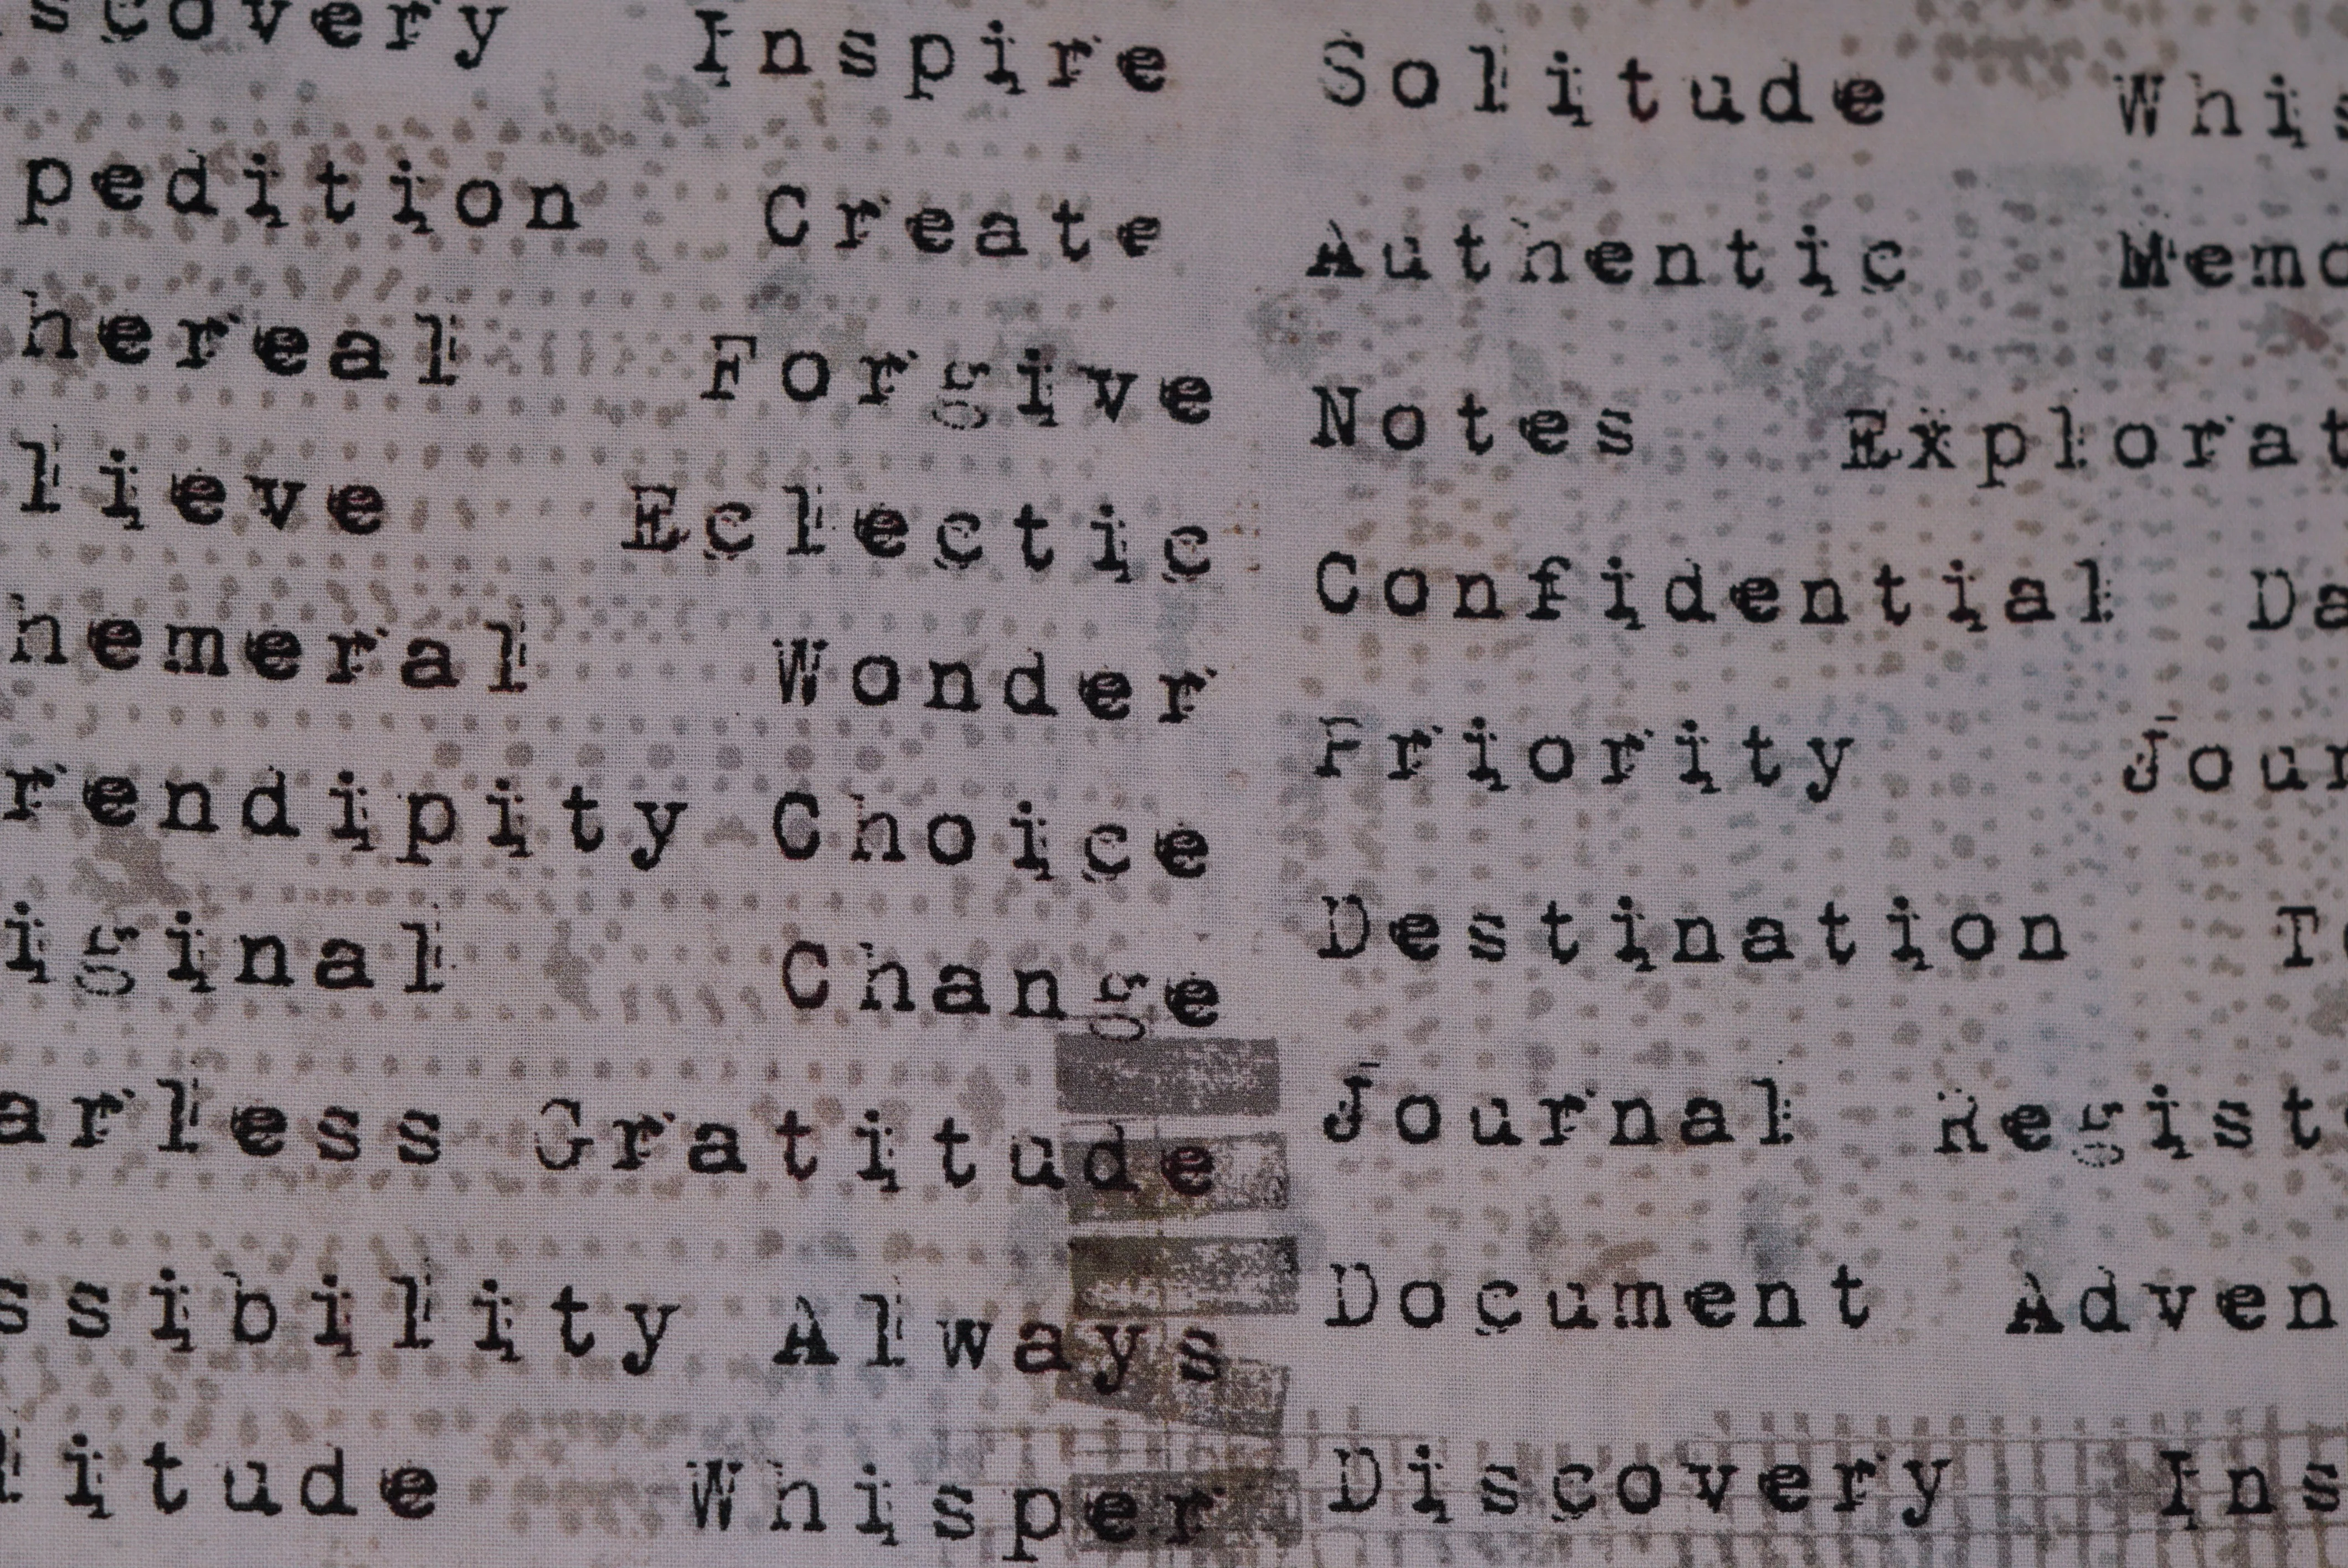 scovery Inspire
pedition Create
hereal Forgive
lieve Eclectic
hemeral Wonder
rendipity Choice
iginal Change
arless Gratitude
ssibility Always
litude Whisper
Solitude Whis
Authentic Memo
Notes Explorat
Confidential Da
Priority Jour
Destination To
Journal Regist
Document Adven
Discovery Ins